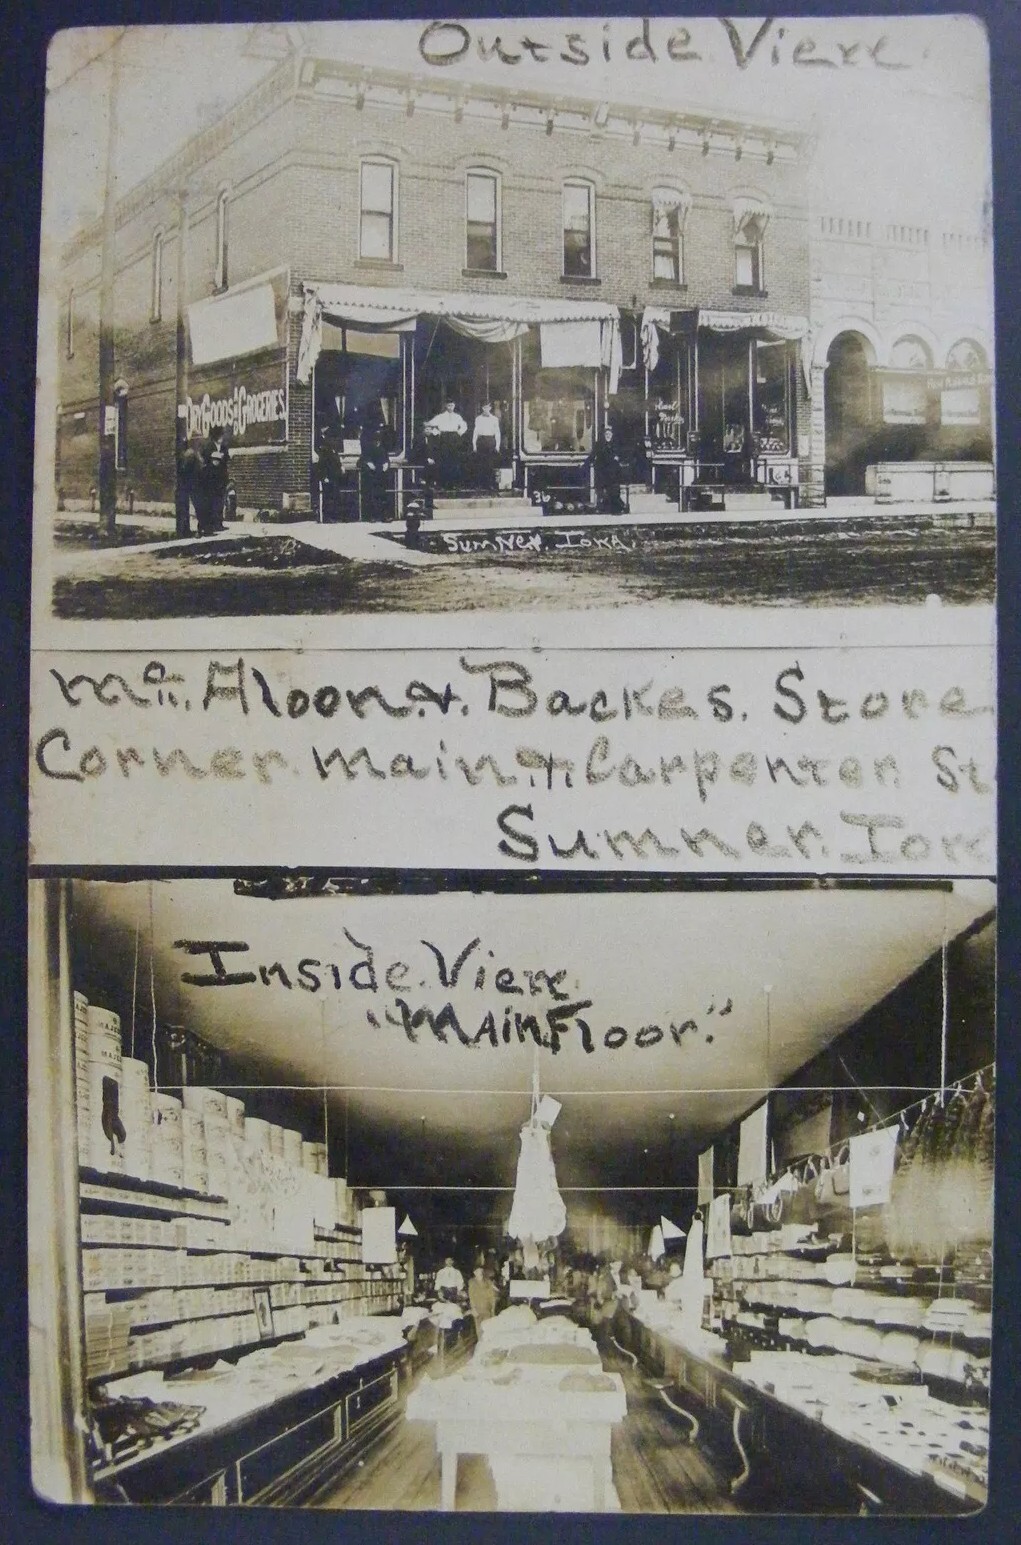 Outside View.
DRY GOODS & GROCERIES
36
Sumner, Iowa.
Mc.Aloon.&.Backes. Store
Corner.Main.&.Carpenter St
Sumner. Iow
Inside.View.
"Main Floor."